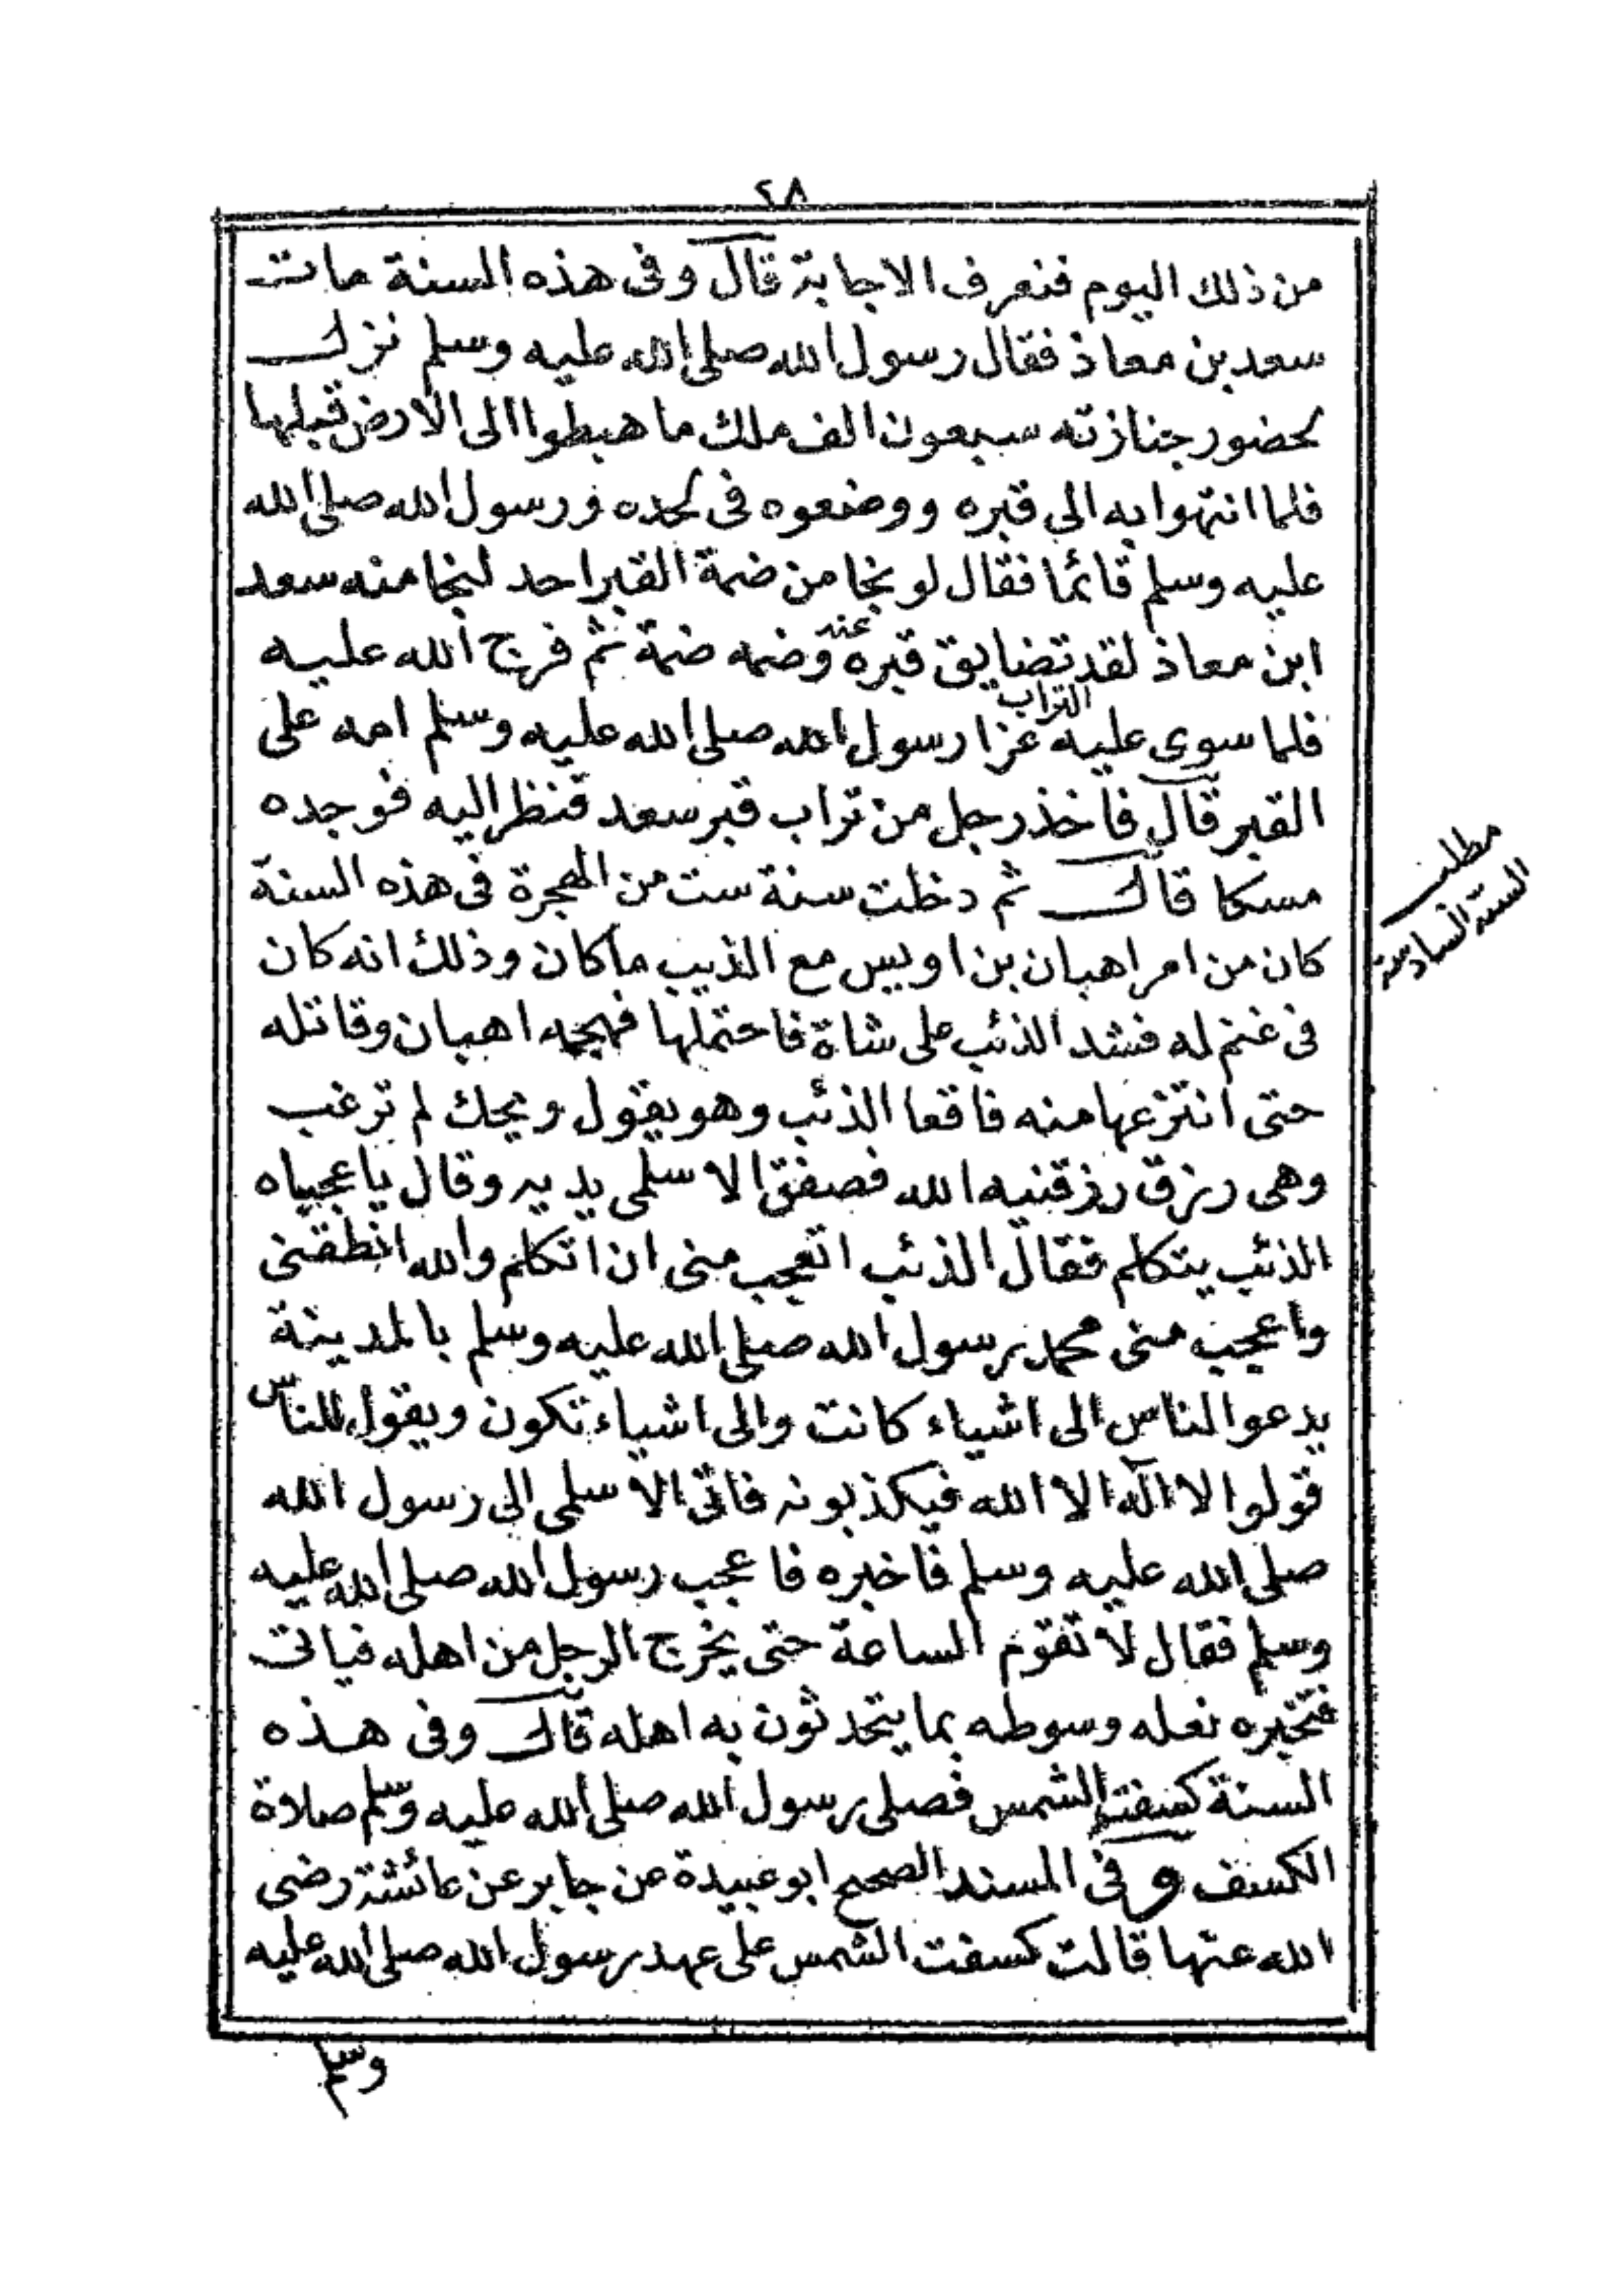 ٢٨
من ذلك اليوم فنعرف الاجابة قال وفى هذه السنة مات
سعد بن معاذ فقال رسول الله صلى الله عليه وسلم نزل
لحضور جنازته سبعون الف ملك ما هبطوا الى الارض قبلها
فلما انتهوا به الى قبره ووضعوه فى لحده ورسول الله صلى الله
عليه وسلم قائما فقال لو نجا من ضمة القبر احد لنجا منه سعد
عنه
ابن معاذ لقد تضايق قبره وضمه ضمة ثم فرج الله عليه
التراب
فلما سوى عليه عزا رسول الله صلى الله عليه وسلم امه على
القبر قال فاخذ رجل من تراب قبر سعد فنظر اليه فوجده
مسكا قال ثم دخلت سنة ست من الهجرة فى هذه السنة
مطلب
السنة السادسة
كان من امر اهبان بن اويس مع الذيب ما كان وذلك انه كان
فى غنم له فشد الذئب على شاة فاحتملها فهجمه اهبان وقاتله
حتى انتزعها منه فاقعا الذئب وهو يقول ويحك لم ترغب
وهى رزق رزقنيه الله فصفق الاسلمى يديه وقال يا عجباه
الذئب يتكلم فقال الذئب اتعجب منى ان اتكلم والله انطقنى
واعجب منى محمد رسول الله صلى الله عليه وسلم بالمدينة
يدعوا الناس الى اشياء كانت والى اشياء تكون ويقول للناس
قولوا لا اله الا الله فيكذبونه فاتى الاسلمى الى رسول الله
صلى الله عليه وسلم فاخبره فاعجب رسول الله صلى الله عليه
وسلم فقال لا تقوم الساعة حتى يخرج الرجل من اهله فياتى
فتخبره نعله وسوطه بما يتحدثون به اهله قال وفى هذه
السنة كسفت الشمس فصلى رسول الله صلى الله عليه وسلم صلاة
الكسف وفى المسند الصحيح ابو عبيدة عن جابر عن عائشة رضى
الله عنها قالت كسفت الشمس على عهد رسول الله صلى الله عليه
وسلم